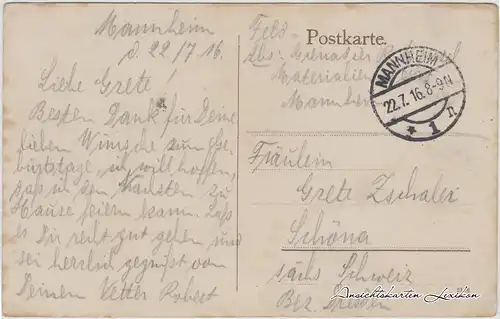 Mannheim
d. 22/7 16.
Liebe Grete!
Besten Dank für Deine
lieben Wünsche zum Ge-
burtstage, ich will hoffen,
das in den Nächsten zu
Hause feiern kann. Laß
es Dir recht gut gehen und
sei herzlich gegrüßt von
Deinem Vetter Robert
Postkarte.
Feld
Abs: Grenadier
Materialien
Mannheim
MANNHEIM
22.7.16. 8-9 N
* 1 n
Fräulein
Grete Zschaler
Schöna
sächs Schweiz
Bez. Dresden
Ansichtskarten Lexikon